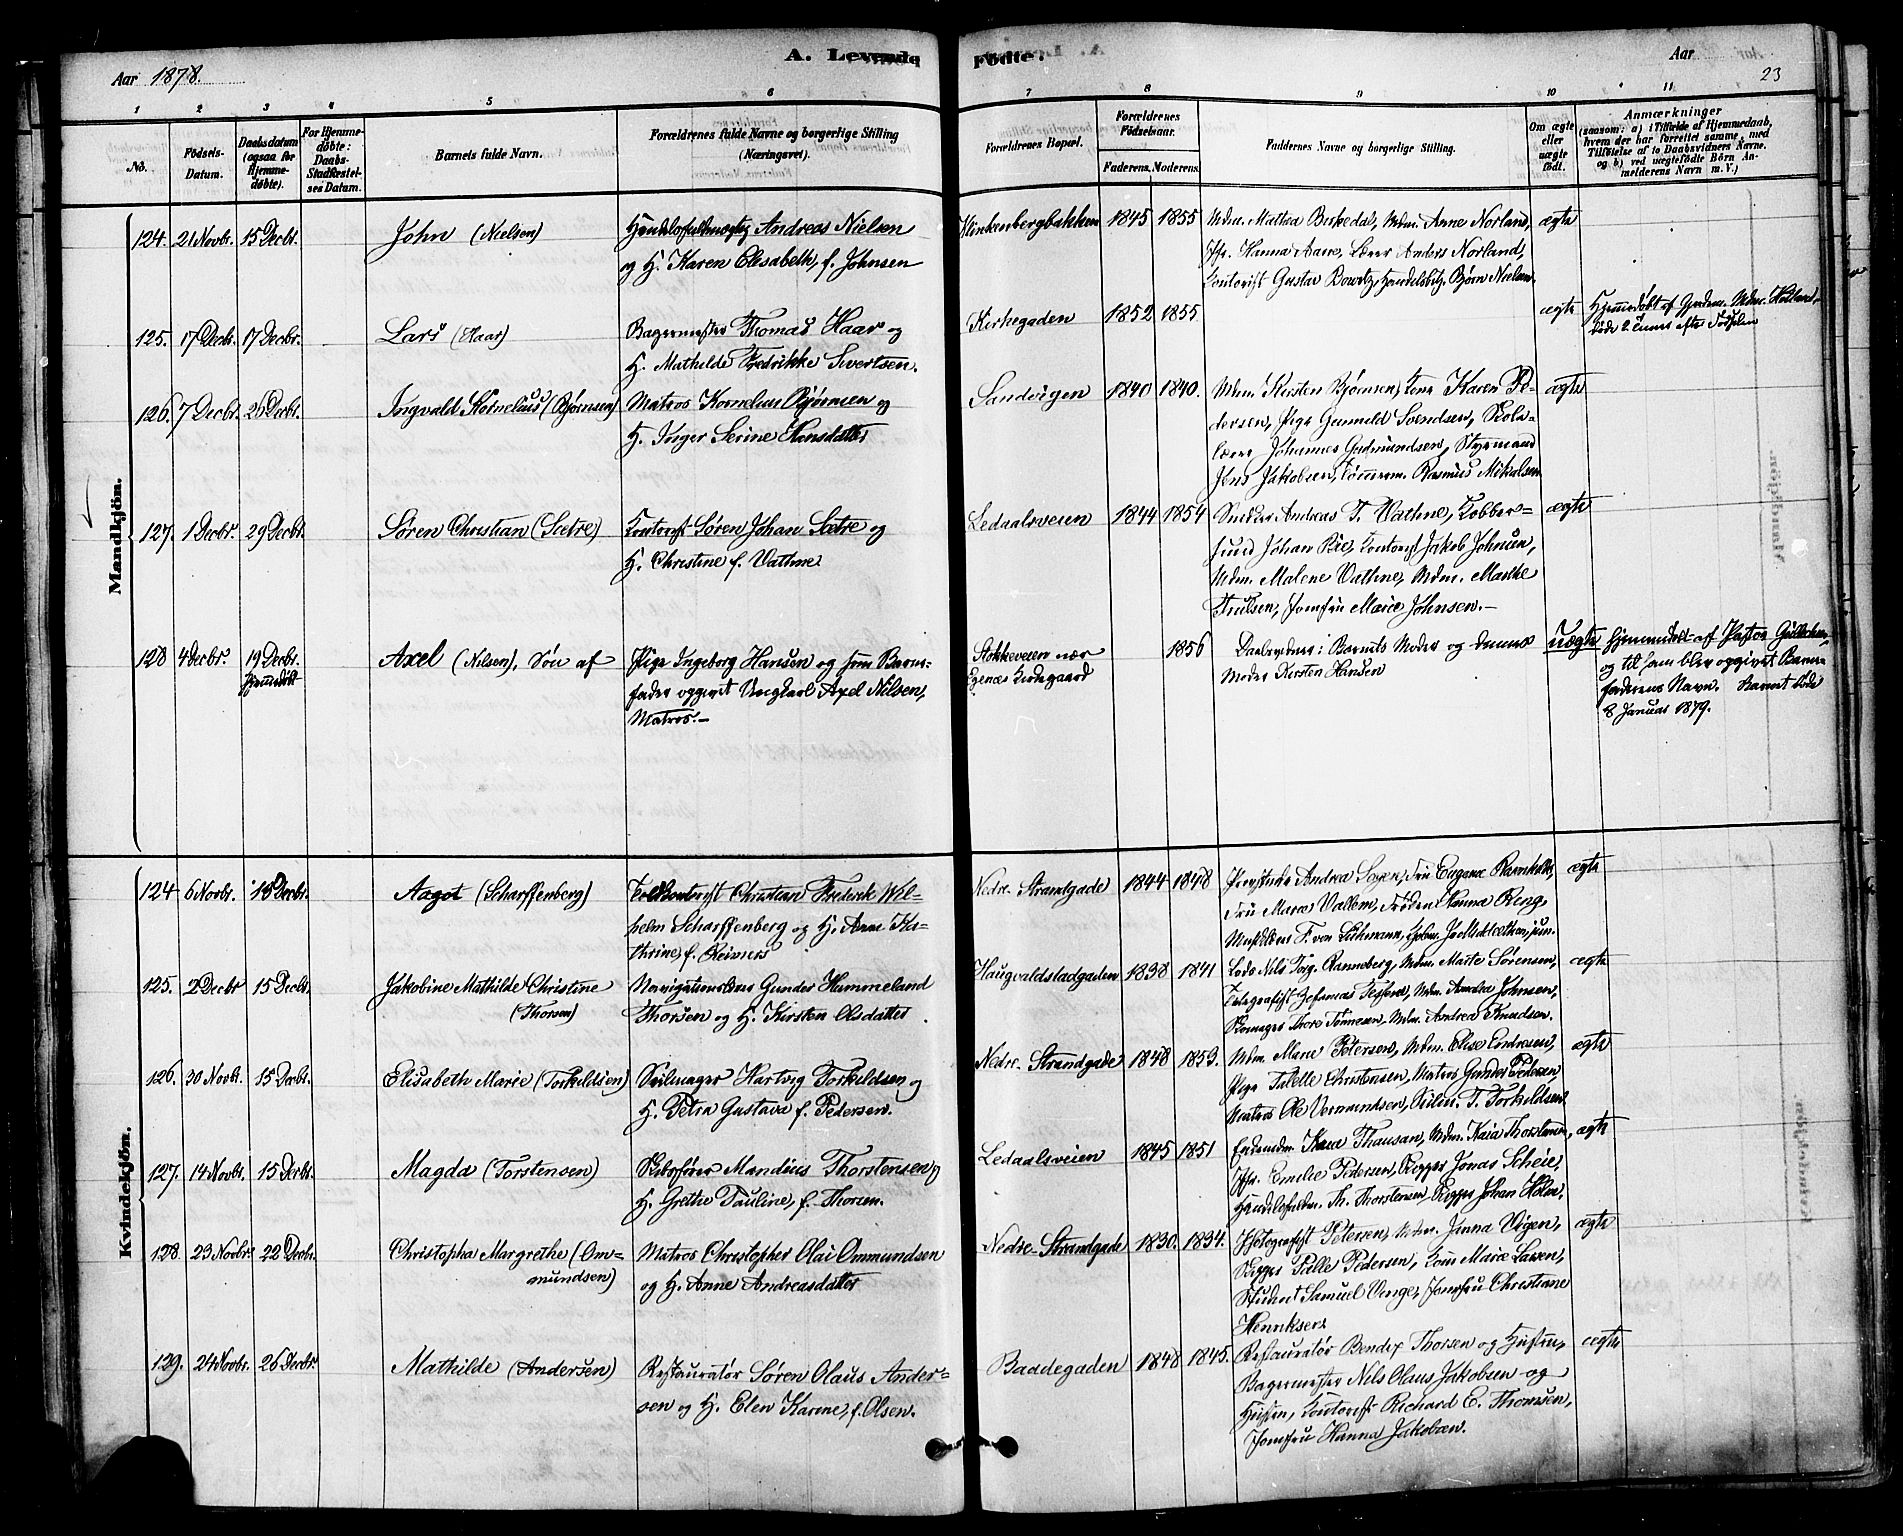 A. Levende Fødte.
Aar 1878.
Aar
23
1 2 3 4 5 6 7 8 9 10 11
No.
Fødsels-Datum.
Daabsdatum (ogsaa for Hjemmedøbte).
For Hjemmedøbte: Daabs-Stadfæstelses Datum.
Barnets fulde Navn.
Forældrenes fulde Navne og borgerlige Stilling (Næringsvei).
Forældrenes Bopæl.
Forældrenes Fødselsaar.
Faderens. Moderens.
Faddernes Navne og borgerlige Stilling.
Om ægte eller uægte født.
Anmærkninger
(saasom: a) i Tilfælde af Hjemmedaab, hvem der har forrettet samme, med Tilføielse af to Daabsvidners Navne, og b) ved uægtefødte Børn Anmelderens Navn m. V.)
Mandkjön.
124. 21 Novbr. 15 Decbr. John (Nielsen) Handelsfuldmægtig Andreas Nielsen Klinkenbergbakken 1845 1855 Mdm. Mathea Birkedal, Mdm. Anne Norland, ægte
og H. Karen Elisabeth, f. Johnsen Jfr. Hanna Aare, Lærer Anders Norland,
Kontorist Gustav Bowitz, Handelsbetj. Bjørn Nielsen.
125. 17 Decb. 17 Decbr. Lars (Haar) Bagermester Thomas Haar og Kirkegaden 1852 1855 ægte Hjemmedøbt af Gjordem. Mdm. Hetland,
H. Mathilde Fredrikke Sivertsen. døde 2 Timer efter Fødselen
126. 7 Decbr. 26 Decbr. Ingvald Kornelius (Bjørnsen) Matros Kornelius Bjørnsen og Sandvigen 1840 1840. Mdm. Kirsten Bjørnsen, Kone Karen Pe- ægte
H. Inger Serine Hansdatter dersen, Pige Gunnild Svendsen, Skole-
lærer Johannes Gudmundsen, Styrmand
Jens Jakobsen, Tømrerm. Rasmus Mikalsen
127. 1 Decbr. 29 Decbr. Søren Christian (Sætre) Kontorist Søren Johan Sætre og Ledaalsveien 1844 1854 Snedker Andreas T. Vathne, Kobber- ægte
H. Christine f. Vathne smed Johan Roe, Kontorist Jakob Johnsen,
Mdm. Malene Vathne, Mdm. Marthe
Trulsen, Jomfru Marie Johnsen.—
128 4 Decbr. 19 Decbr. Hjemmedøbt Axel (Nilsen), Søn af Pige Ingeborg Hansen og som Barne- Stokkeveien nær 1856 Daabsvidner: Barnets Moder og dennes uægte Hjemmedøbt af Pastor
fader opgivet Ungkarl Axel Nilsen, Egenæs Kirkegaard Moder Kirsten Hansen og til ham blev opgivet Barne-
Matros.— faderens Navn. Barnet døde
8 Januar 1879.
Kvindekjön.
124 6 Novbr. 15 Decbr. Aagot (Scharffenberg) Toldkontorist Christian Frederik Wil- Nedre Strandgade 1844 1848 Andrea Fru Eugenie ægte
helm Scharffenberg og H. Anne Ka- Fru Marie Vallem, Frøken Hanna Reng,
thrine, f. Reimers
125. 2 Decbr 15 Decbr. Jakobine Mathilde Christine Navigationslærer Gunder Hummeland Haugvaldstadgaden 1838 1841 Lods Nils Torg. Ranneberg, Mdm. Marte Sørensen, ægte
(Thorsen) Thorsen og H. Kirsten Olsdatter Telegrafist Tessem, Mdm. Andrea Johnsen,
Skomager Thore Tønnesen, Mdm. Andrea Knudsen.
126. 30 Novbr. 15 Decbr. Elisabeth Marie (Torkildsen) Seilmager Hartvig Torkildsen og Nedre Strandgade 1848 1853. Mdm. Marie Petersen, Mdm. Elise Endresen, ægte
H. Petra Gustava f. Pedersen. Pige Talette Christensen, Matros Gunder Pedersen,
Matros Ole Vermundsen, Seilm. T. Torkildsen
127. 14 Novbr. 15 Decbr. Magda (Torstensen) Skibsfører Mandius Thorstensen og Ledaalsveien 1845 1851 Thausan, Mdm. Kaia Thorstensen, ægte
H. Grethe Pauline, f. Thorsen. Jfr. Emilie Pedersen, Rigger Jonas Scheie,
Handelsfuldm. Th. Thorstensen, Rigger Johan Holm.
128. 23 Novbr. 22 Decbr. Christopha Margrethe (Om- Matros Christopher Olai Ommundsen Nedre Strandgade 1830. 1834. Fotografist Petersen, Mdm. Jinna Vigen, ægte
mundsen) og H. Anne Andreasdatter Rigger Palle Pedersen, Kone Marie Larsen,
Student Samuel Venge, Jomfru Christiane
Henriksen
129. 24 Novbr. 26 Decbr Mathilde (Andersen) Restauratør Søren Olaus Ander- Baadegaden 1848 1845. Restauratør Bendix Thorsen og Hustru, ægte
sen og H. Elen Karine, f. Olsen. Bagermester Nils Olaus Jakobsen og
Hustru, Kontorist Richard E. Thomsen,
Jomfru Hanna Jakobsen.